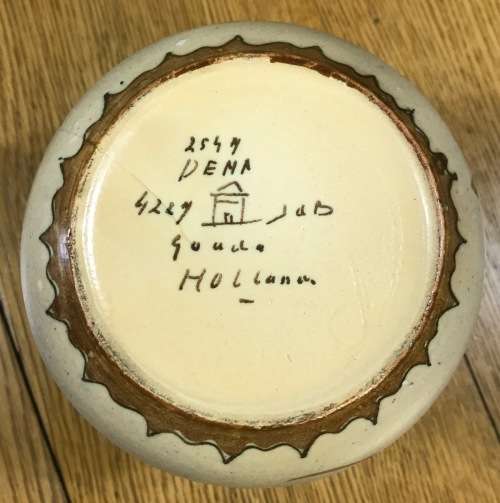 2547
DEMA
4227 JaB
Gouda
HOLLand